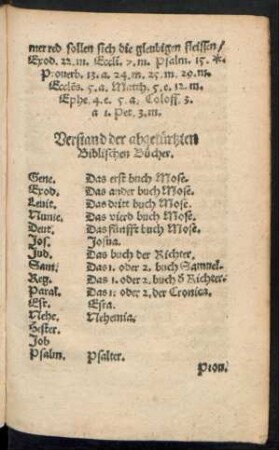 mer red sollen sich die gleubigen fleissen/
Exod. 22.m. Eccli. 7.m. Psalm. 15. *.
Prouerb. 13.a. 24.m. 25.m. 29.m.
Eccles. 5.a. Matth. 5.e. 12.m.
Ephe. 4.e. 5.a. Coloss. 3.
a 1. Pet. 3.m.
Verstand der abgekürtzten
Biblischen Bücher.
Gene. Das erst buch Mose.
Exod. Das ander buch Mose.
Leuit. Das dritt buch Mose.
Nume. Das vierd buch Mose.
Deut. Das fünfft buch Mose.
Jos. Josua.
Jud. Das buch der Richter.
Sam. Das 1. oder 2. buch Samuel.
Reg. Das 1. oder 2. buch d Richter.
Paral. Das 1. oder 2. der Cronica.
Esr. Esra.
Nehe. Nehemia.
Hester.
Job
Psalm. Psalter.
Prou.